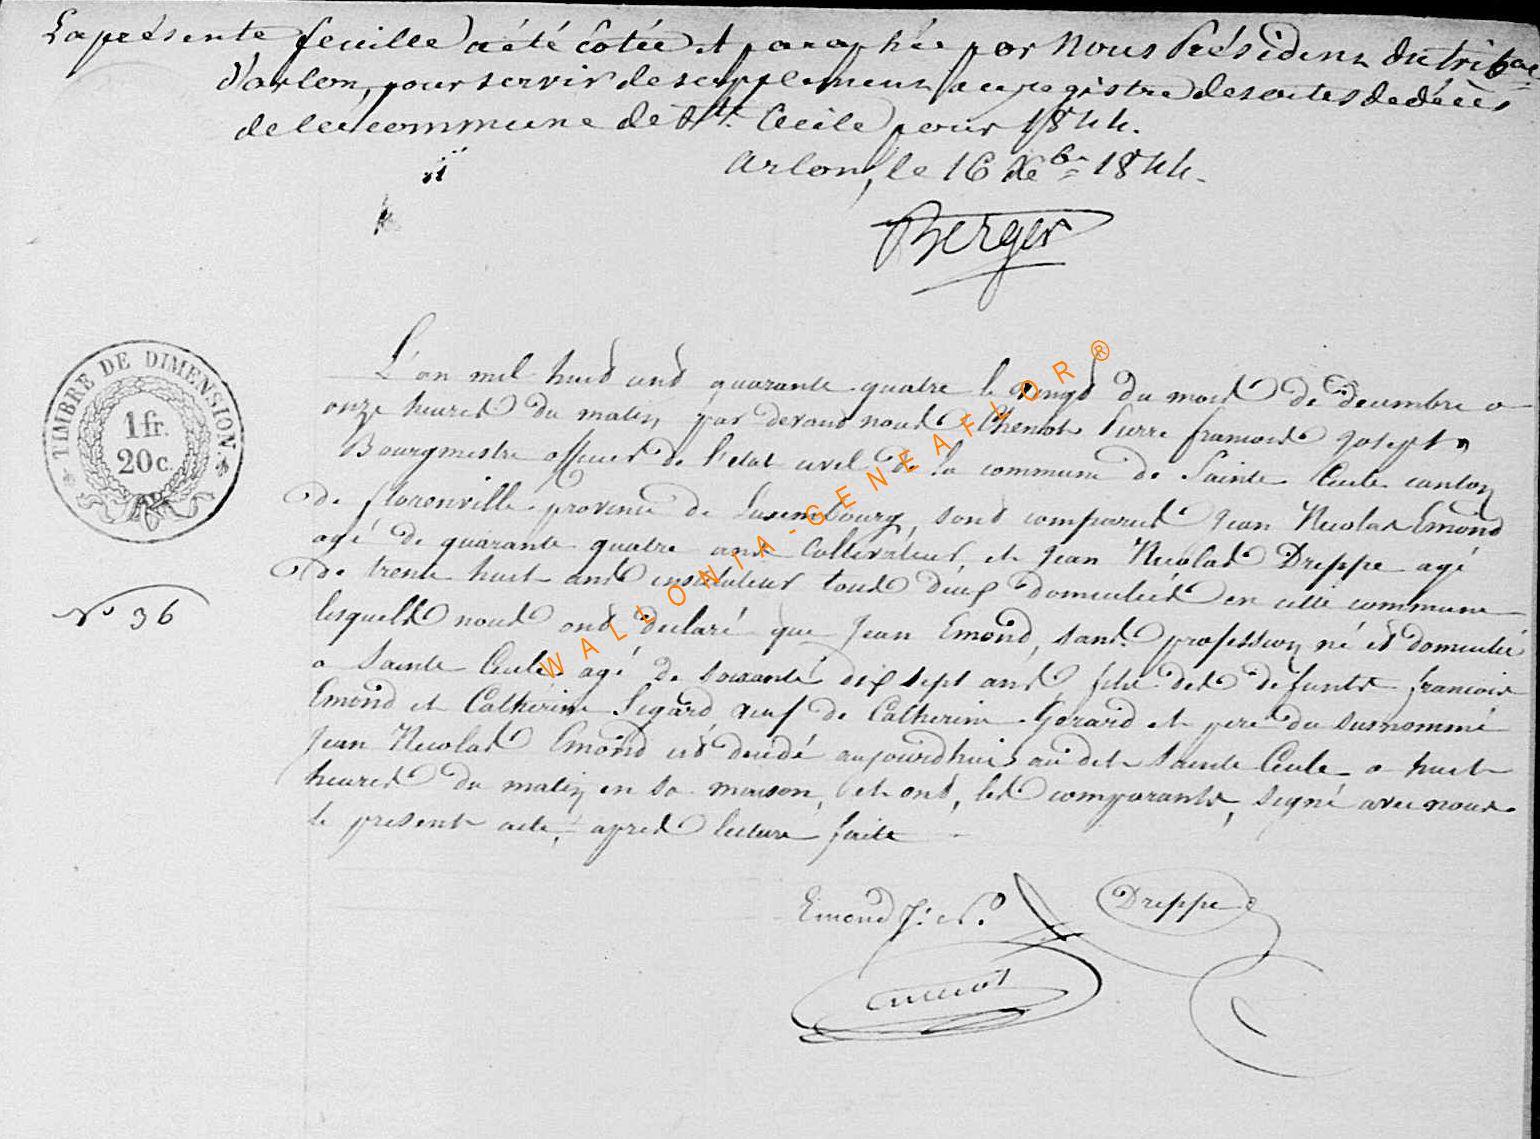 La présente feuille a été côtée et paraphée par Nous Président du trib^al
d'arlon, pour servir de supplément au registre des actes de décès
de la commune de Ste. Cécile pour 1844.
Arlon, le 16 Xe^bre 1844.
Berger
TIMBRE DE DIMENSION.
1 fr.
20 c.
L'an mil huit cent quarante quatre le vingt du mois de decembre a
onze heures du matin, par devant nous Chenot Pierre francois Joseph
Bourgmestre officier de l'etat civil de la commune de Sainte Cecile canton
de florenville province de Luxembourg, sont comparus Jean Nicolas Emond
agé de quarante quatre ans Cultivateur, et Jean Nicolas Dreppe agé
de trente huit ans instituteur tous deux domiciliés en cette commune
N° 36
lesquels nous ont declaré que Jean Emond, sans profession né et domicilié
a Sainte Cecile agé de soixante dix sept ans, fils des defunts francois
Emond et Catherine Sigard, veuf de Catherine Gerard et pere du susnommé
Jean Nicolas Emond est decedé aujourdhui audit Sainte Cecile a huit
heures du matin en sa maison, et ont, les comparants, signé avec nous
le present acte, apres lecture faite
Emond J: N. Dreppe
Chenot
WALLONIA-GENEAFLOR®